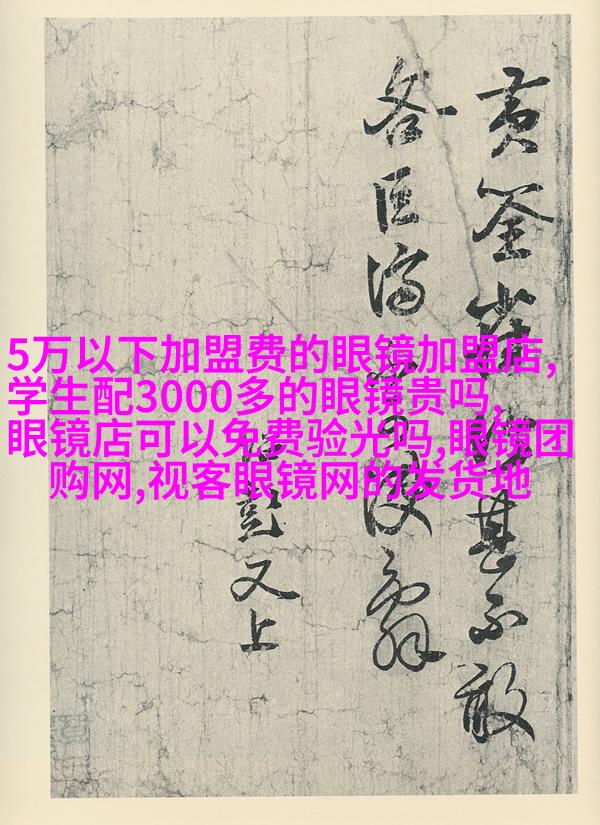 5万以下加盟费的眼镜加盟店,
学生配3000多的眼镜贵吗,
眼镜店可以免费验光吗,眼镜团
购网,视客眼镜网的发货地
黄筌甚不敢
名臣
又上